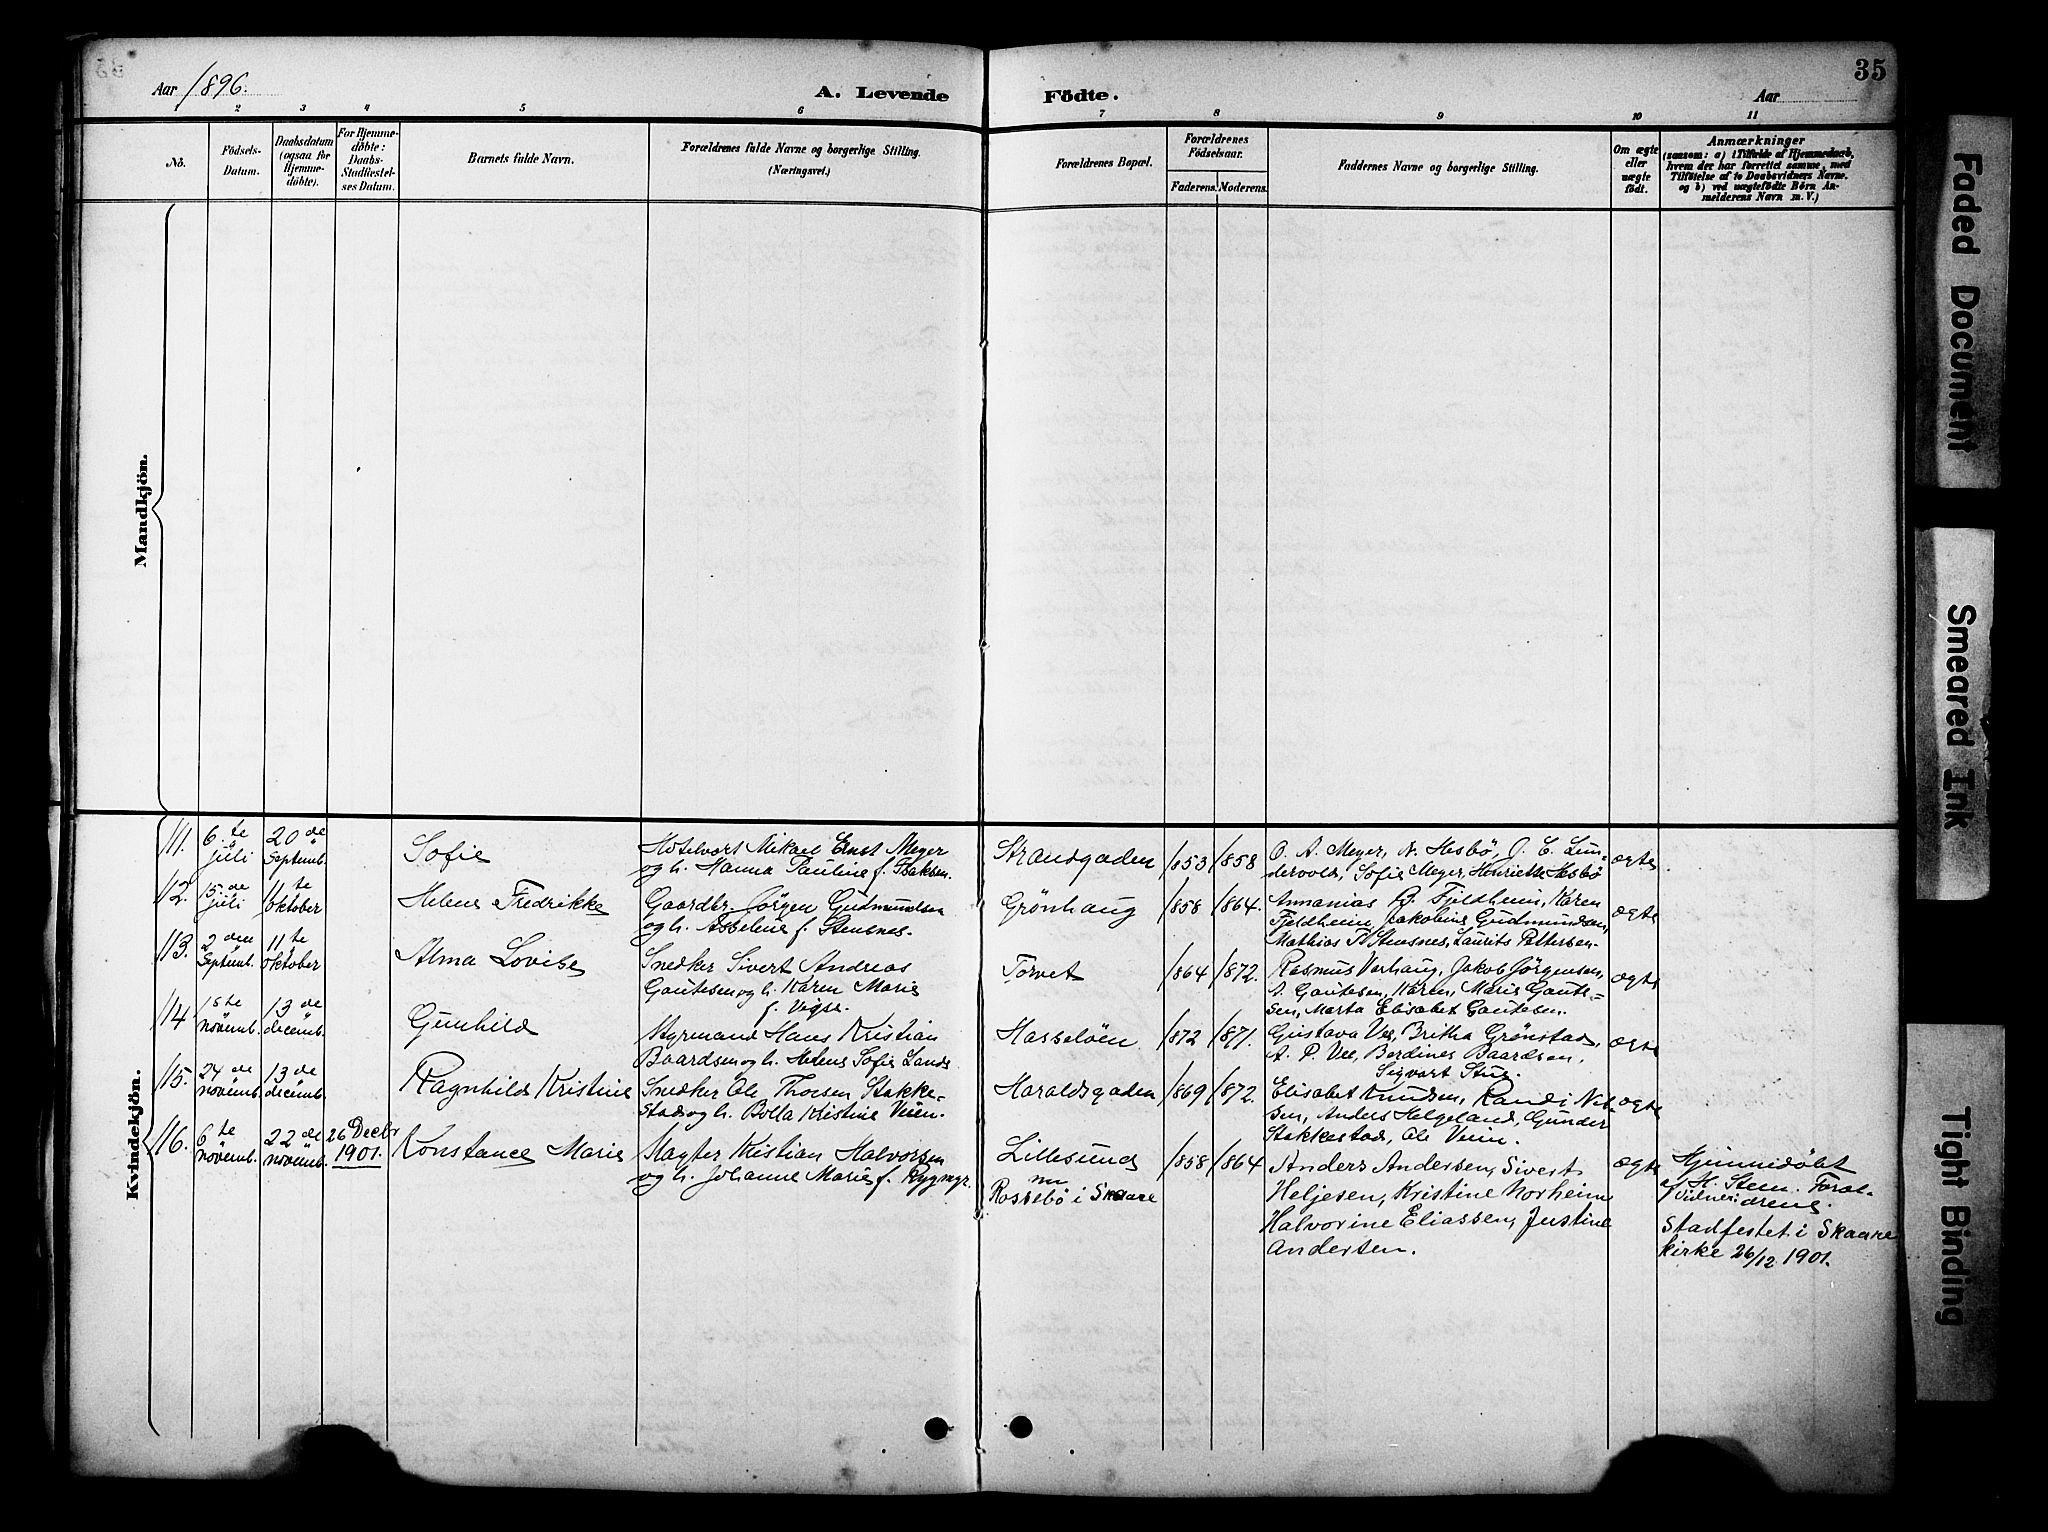 35
Aar 1896.
A. Levende Födte.
Aar
1 2 3 4 5 6 7 8 9 10 11
No.
Födsels-
Datum.
Daabsdatum
(ogsaa for
Hjemme-
döbte).
For Hjemme-
döbte:
Daabs-
Stadfæstel-
ses Datum.
Barnets fulde Navn.
Forældrenes fulde Navne og borgerlige Stilling.
(Næringsvei.)
Forældrenes Bopæl.
Forældrenes
Födselsaar.
Faderens. Moderens.
Faddernes Navne og borgerlige Stilling.
Om ægte
eller
uægte
födt.
Anmærkninger
(saasom: a) i Tilfælde af Hjemmedaab,
hvem der har forrettet samme, med
Tilföielse af to Daabsvidners Navne.
og b) ved uægtefödte Börn An-
melderens Navn m. V.)
Mandkjön.
Kvindekjön.
111. 6te juli
20de Septemb.
Sofie
Hotelvert Mikael Ernst Meyer
og h. Hanna Pauline f. Isaksen.
Strandgaden
1853 1858
O. A. Meyer, N. Hesbö, O. E. Lun-
dervold, Sofie Meyer, Henriette Hesbö
ægte
112. 15de juli
11te oktober
Helene Fredrikke
Gaardbr. Jörgen Gudmundsen
og h. Asseline f. Stensnes.
Grönhaug
1858 1864.
Annanias B. Fjeldheim, Karen
Fjeldheim, Jakobine Gudmundsen,
Mathias Stensnes, Laurits Pettersen.
ægte
113. 2den Septemb.
11te oktober
Alma Lovise
Snedker Sivert Andreas
Gautesen og h. Karen Marie
f. Vigse.
Torvet
1864 1872.
Rasmus Varhaug, Jakob Jörgensen,
A. Gautesen, Karen, Marie Gaute-
sen, Marta Elisabet Gautesen.
ægte
114 1ste novemb.
13de decemb.
Gunhild
Styrmand Hans Kristian
Baardsen og h. Helene Sofie Lande
Hasselöen
1872 1871.
Gustava Vee, Britha Grönstad,
A. P. Vee, Berdines Baardsen,
Sigvart Stue.
ægte
115. 24de novemb.
13de decemb.
Ragnhild Kristine
Snedker Ole Thorsen Stakke-
stad og h. Bolla Kristine Veien.
Haraldsgaden
1869 1872.
Elisabet Knudsen, Randi Nil-
sen, Anders Helgeland, Gunder
Stakkestad, Ole Veim.
ægte
116. 6te novemb.
22de novemb.
26 Decbr
1901.
Konstance Marie
Magter Kristian Halvorsen
og h. Johanne Marie f. Rygmyr.
Lillesund
nu
Rossebö i Skaare
1858 1864
Anders Andersen, Sivert
Heljesen, Kristine Norheim
Halvorine Eliassen, Justine
Andersen.
ægte
Hjemmedöbt
af H. Steen. Foræl-
Vidner: drene.
Stadfestet i Skaare
kirke 26/12 1901.
Faded Document
Smeared Ink
Tight Binding